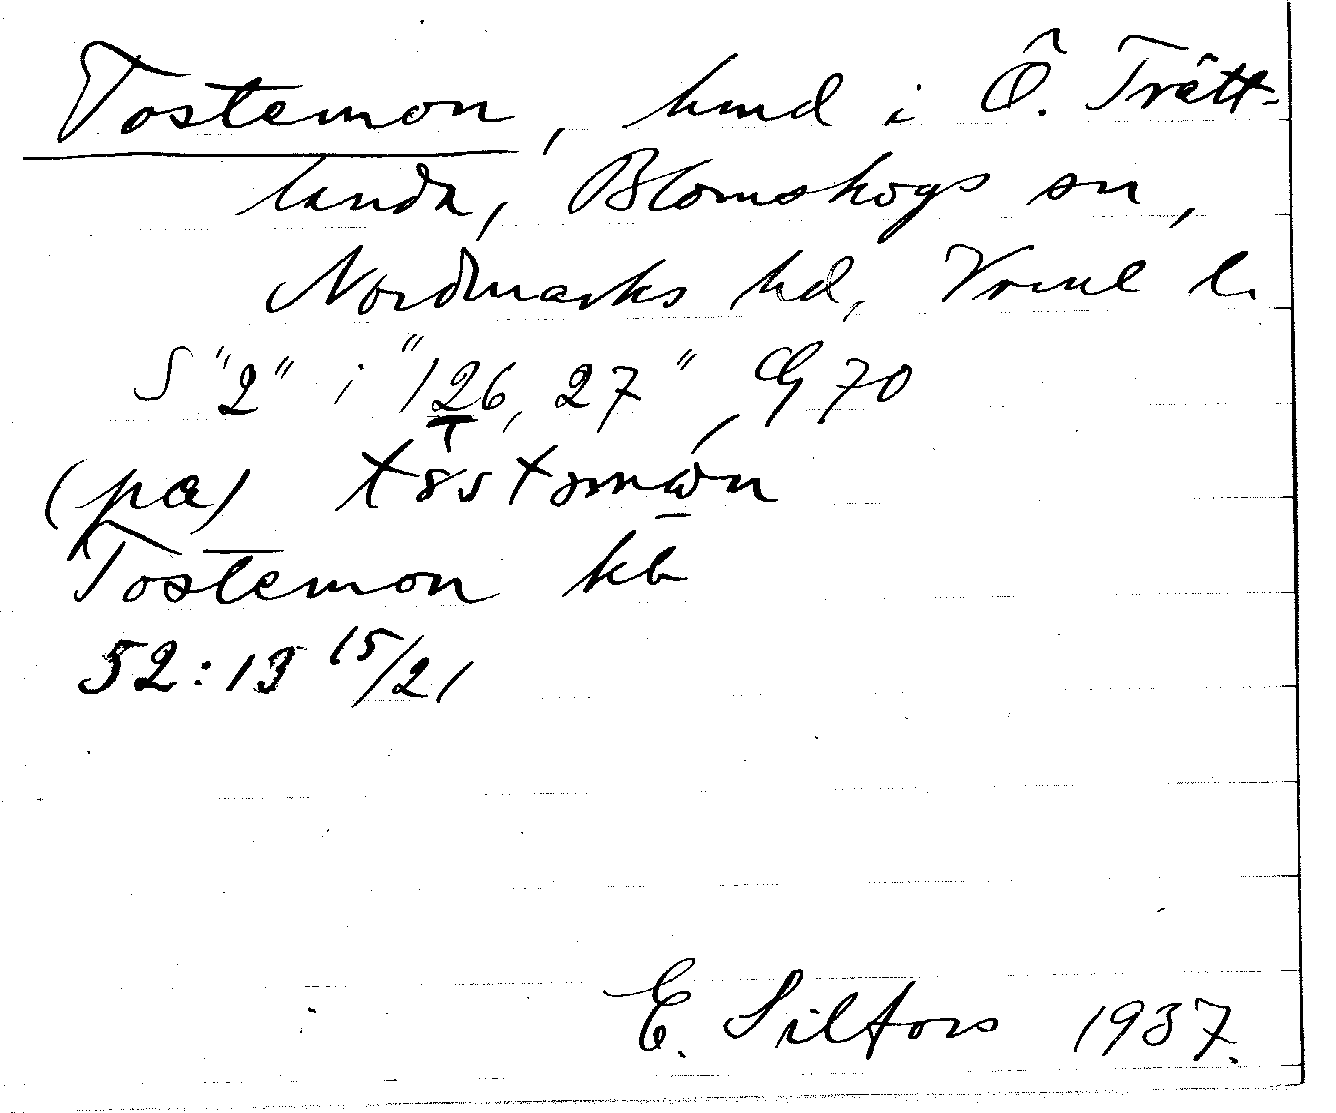 Tostemon, hmd i Ö. Trätt-
landa, Blomskogs sn,
Nordmarks hd, Vrml l.
S "2" i "126, 27", G 70
(pa)
Tostemon kb
52:13 15/21
E. Silfors 1937.